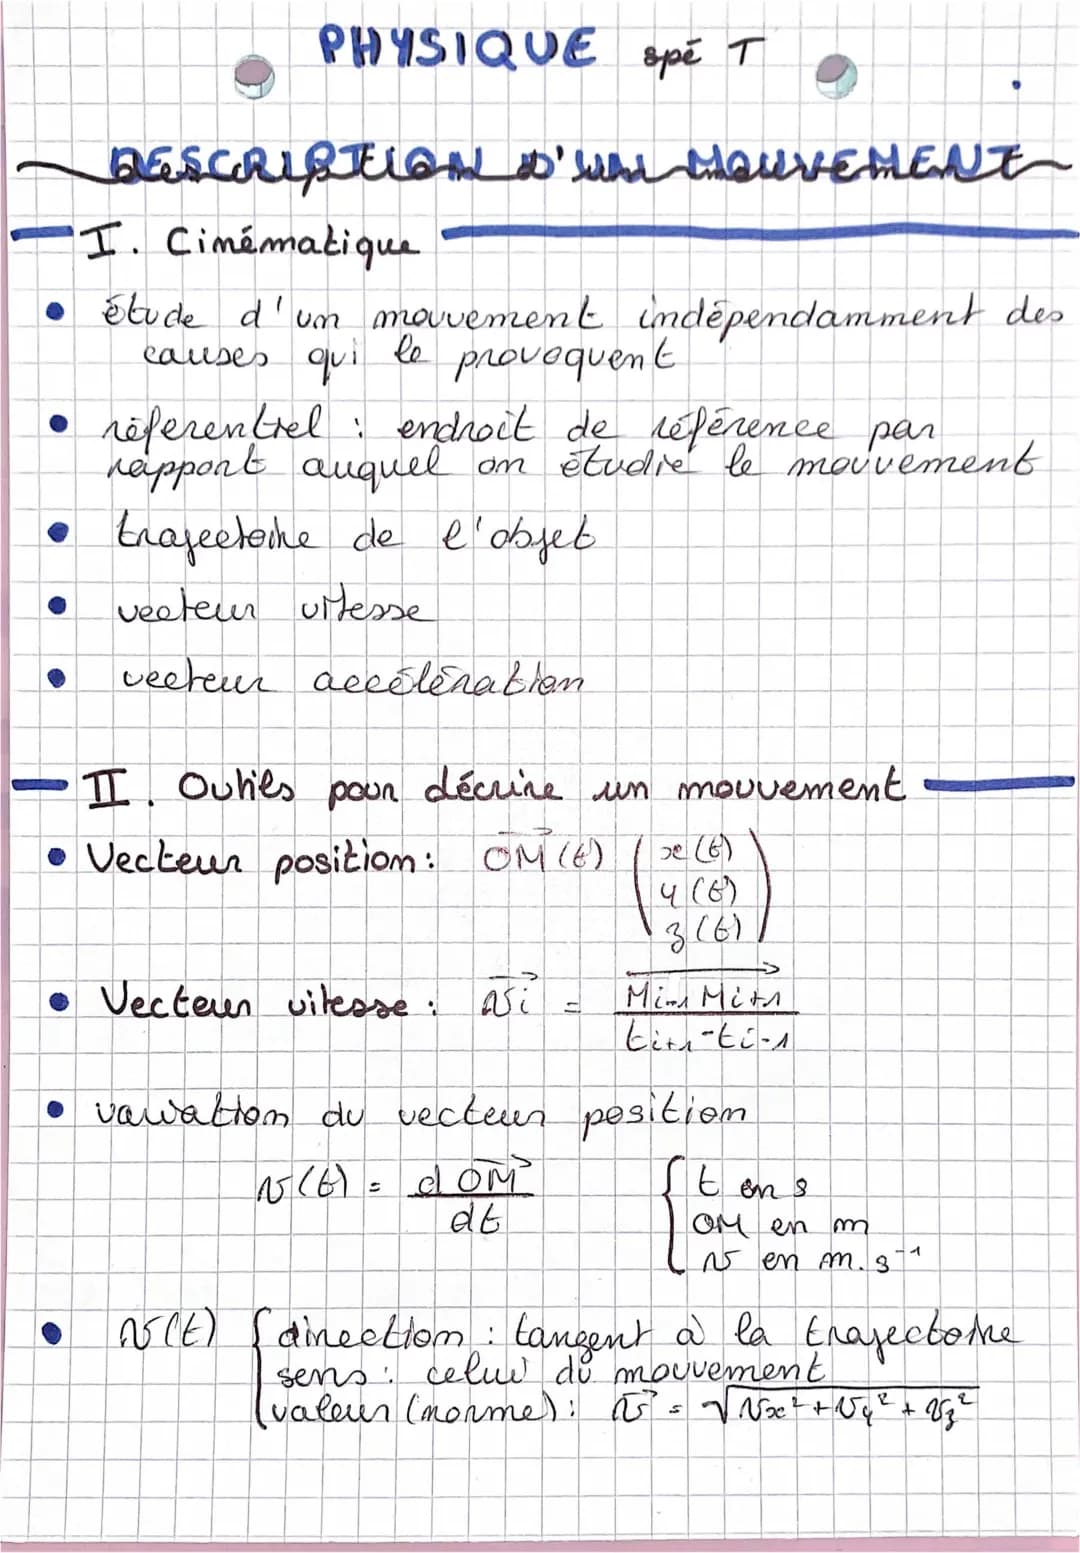 PHYSIQUE spé T
DESCRIPTION D'UN MOUVEMENT
I. Cinématique
étude d'un mouvement indépendamment des
causes qui le provoquent
référentiel : endroit de référence par
rapport auquel on étudie le mouvement
trajectoire de l'objet
vecteur vitesse
vecteur accélération
II. Outils pour décrire un mouvement
Vecteur position : OM⃗(t) ( x(t)
y(t)
z(t) )
Vecteur vitesse : v⃗i = Mi-1 Mi+1
ti+1 - ti-1
variation du vecteur position
v(t) = d OM⃗
dt
{ t en s
OM en m
v en m.s⁻¹
v(t) { direction : tangent à la trajectoire
sens : celui du mouvement
valeur (norme) : v⃗ = √Vx² + Vy² + Vz²